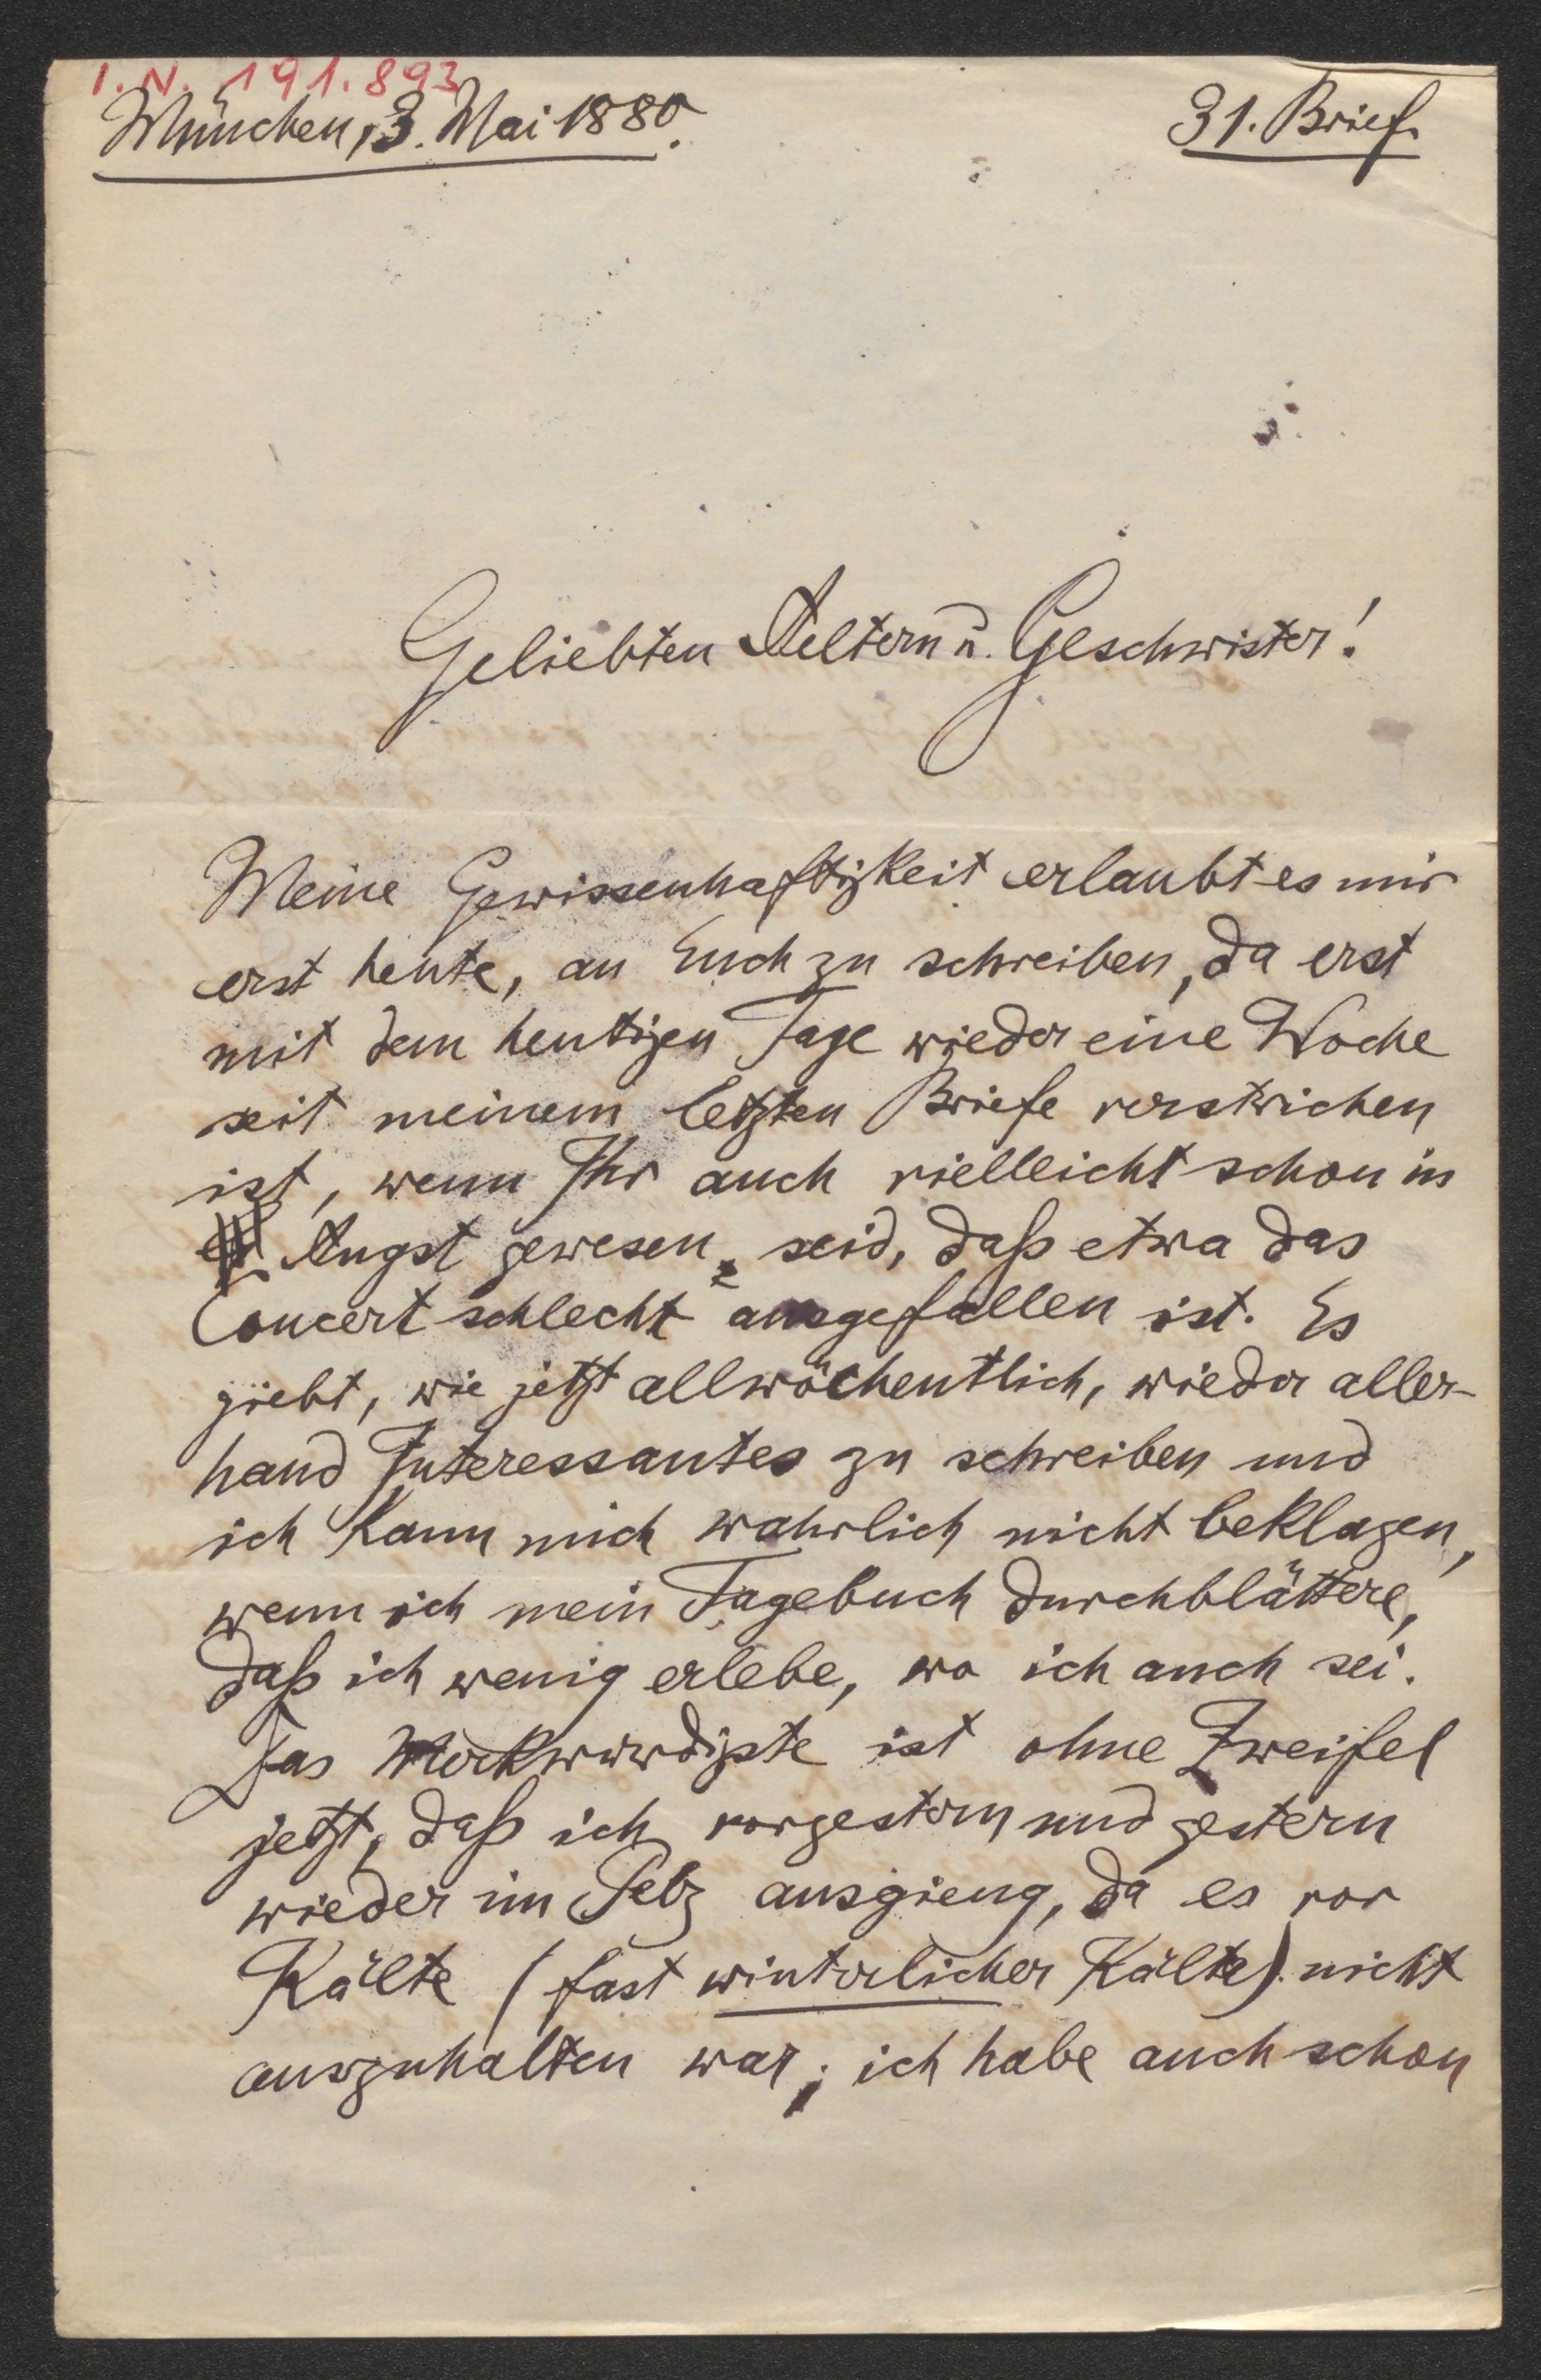 I.N. 191.893
München, 3. Mai 1880.
31. Brief.
Geliebten Aeltern u. Geschwister!
Meine Gewissenhaftigkeit erlaubt es mir
erst heute, an Euch zu schreiben, da erst
mit dem heutigen Tage wieder eine Woche
seit meinem letzten Briefe verstrichen
ist, wenn Ihr auch vielleicht schon in
Angst gewesen seid, daß etwa das
Concert schlecht ausgefallen ist. Es
giebt, wie jetzt allwöchentlich, wieder aller-
hand Interessantes zu schreiben und
ich kann mich wahrlich nicht beklagen,
wenn ich mein Tagebuch durchblättere,
daß ich wenig erlebe, wo ich auch sei.
Das Merkwürdigste ist ohne Zweifel
jetzt, daß ich vorgestern und gestern
wieder im Pelz ausgieng, da es vor
Kälte (fast winterlicher Kälte) nicht
auszuhalten war; ich habe auch schon